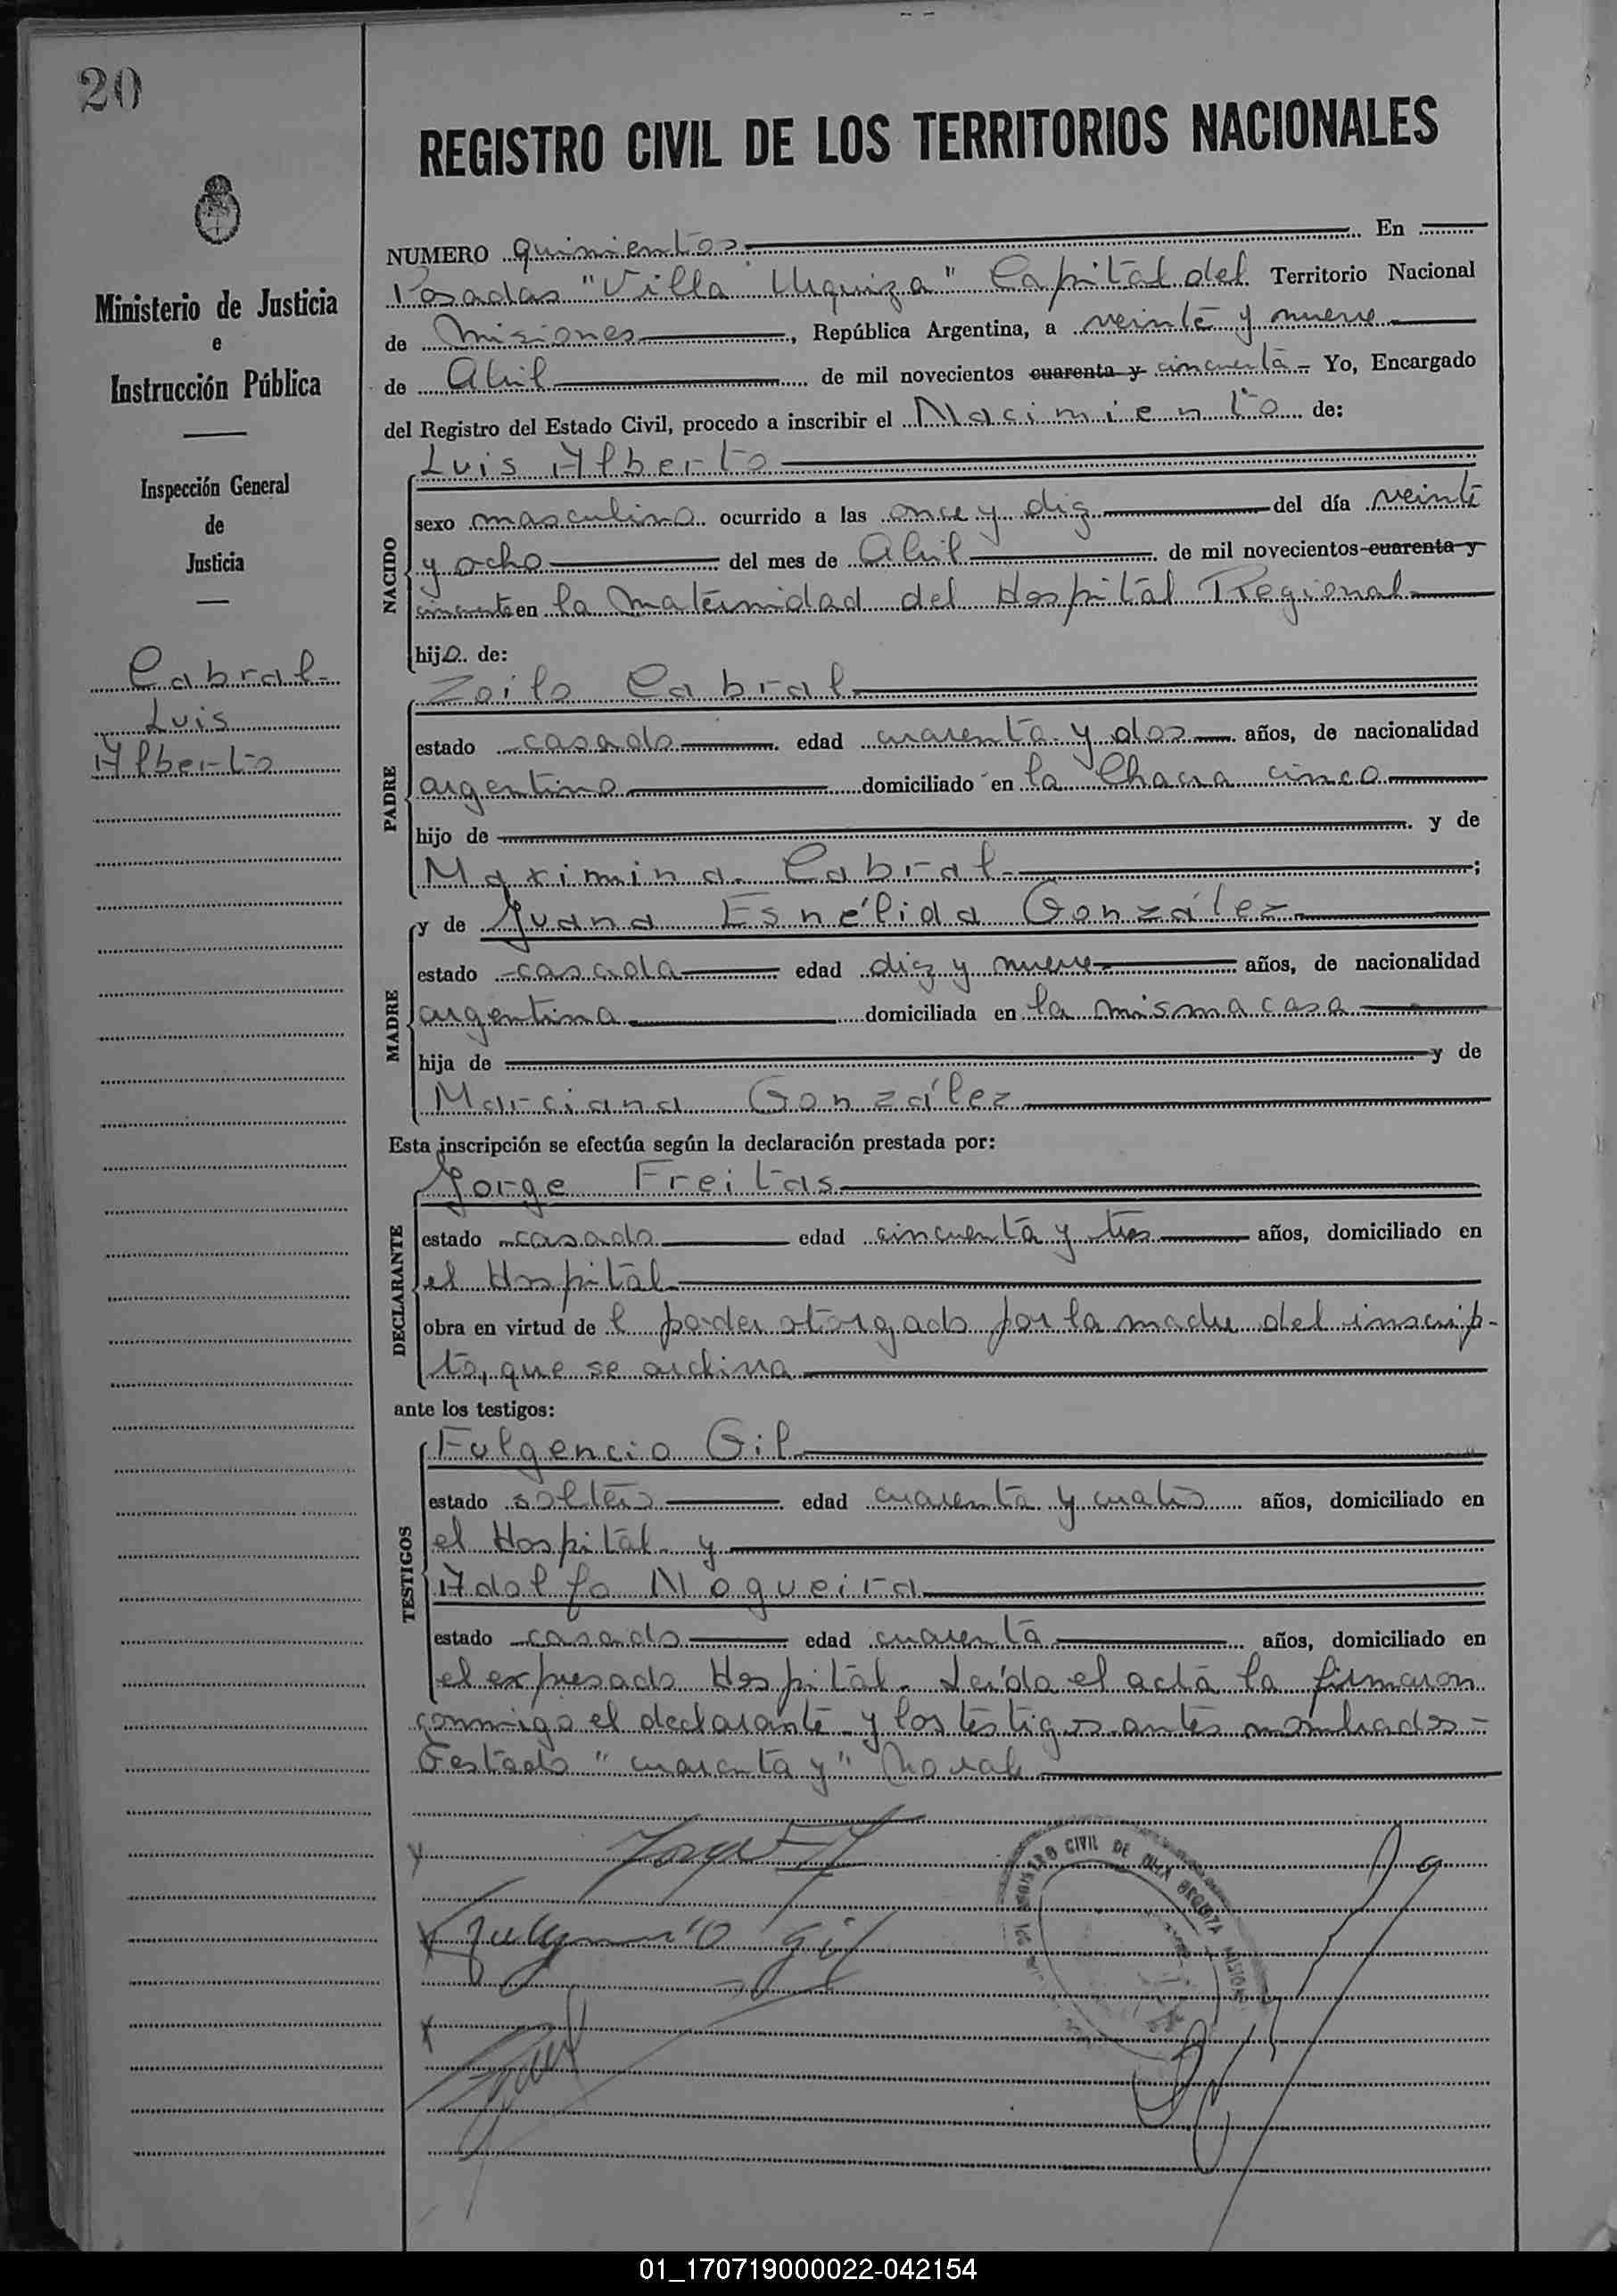 20
REGISTRO CIVIL DE LOS TERRITORIOS NACIONALES
Ministerio de Justicia
e
Instrucción Pública
Inspección General
de
Justicia
Cabral
Luis
Alberto
NUMERO quinientos En
Posadas "Villa Urquiza" Capital del Territorio Nacional
de Misiones, República Argentina, a veinte y nueve
de Abril de mil novecientos cuarenta y cincuenta Yo, Encargado
del Registro del Estado Civil, procedo a inscribir el Nacimiento de:
NACIDO
Luis Alberto
sexo masculino ocurrido a las once y diez del día veinte
y ocho del mes de Abril de mil novecientos cuarenta y
cincuenta en la Maternidad del Hospital Regional
hijo de:
PADRE
Zoilo Cabral
estado casado edad cuarenta y dos años, de nacionalidad
argentino domiciliado en la Chacra cinco
hijo de y de
Maximina Cabral;
MADRE
y de Juana Esnélida González
estado casada edad diez y nueve años, de nacionalidad
argentina domiciliada en la misma casa
hija de y de
Marciana González
Esta inscripción se efectúa según la declaración prestada por:
DECLARANTE
Jorge Freitas
estado casado edad cincuenta y tres años, domiciliado en
el Hospital
obra en virtud de l poder otorgado por la madre del inscrip-
to, que se archiva
ante los testigos:
TESTIGOS
Fulgencio Gil
estado soltero edad cuarenta y cuatro años, domiciliado en
el Hospital y
Adolfo Nogueira
estado casado edad cuarenta años, domiciliado en
el expresado Hospital. Leída el acta la firmaron
conmigo el declarante y los testigos antes nombrados-
Testado "cuarenta y" No vale
REGISTRO CIVIL DE VILLA URQUIZA MISIONES
Fulgencio Gil
01_170719000022-042154